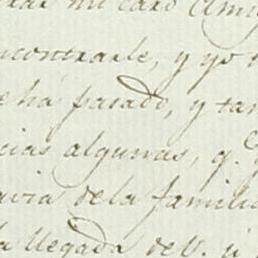 mi caro Amig
ncontrarle, y yo
ha pasado, y tan
cias algunas, q.e
dela familia
la llegada de V. y